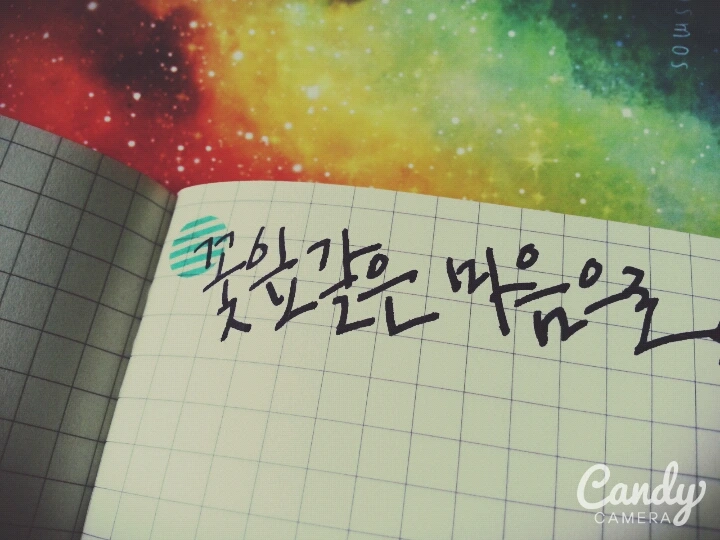 smos
꽃잎같은 마음으로
Candy
CAMERA